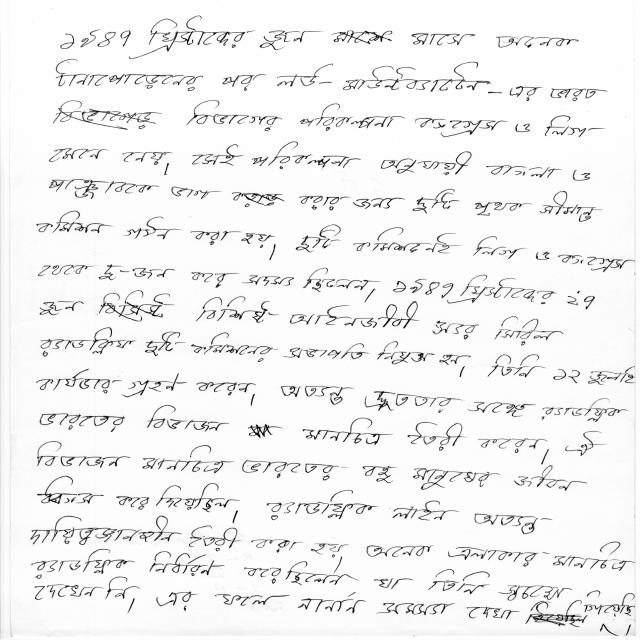 ১৯৪৭ খ্রিস্টাব্দের জুন মাসে অনেক
টানাপোড়েনের পর লর্ড মাউন্টব্যাটেন-এর ভারত
বিভাগের পরিকল্পনা কংগ্রেস ও লিগ
মেনে নেয়। সেই পরিকল্পনা অনুযায়ী বাংলা ও
পাঞ্জাবকে ভাগ করার জন্য দুটি পৃথক সীমান্ত
কমিশন গঠন করা হয়। দুটি কমিশনেই লিগ ও কংগ্রেস
থেকে দু-জন করে সদস্য ছিলেন। ১৯৪৭ খ্রিস্টাব্দের ২৭
জুন বিশিষ্ট আইনজীবী স্যার সিরিল
র‍্যাডক্লিফ দুটি কমিশনের সভাপতি নিযুক্ত হন। তিনি ১২ জুলাই
কার্যভার গ্রহন করেন। অত্যন্ত দ্রুততার সঙ্গে র‍্যাডক্লিফ
ভারতের বিভাজন মানচিত্র তৈরী করেন। ঐ
বিভাজন মানচিত্র ভারতের বহু মানুষের জীবন
করে দিয়েছিল। র‍্যাডক্লিফ লাইন অত্যন্ত
দায়িত্বজ্ঞানহীন তৈরী করা হয়। অনেক এলাকার মানচিত্র
র‍্যাডক্লিফ নির্ধারন করেছিলেন যা তিনি স্বচক্ষে
দেখেন নি। এর ফলে নানান সমস্যা দেখা